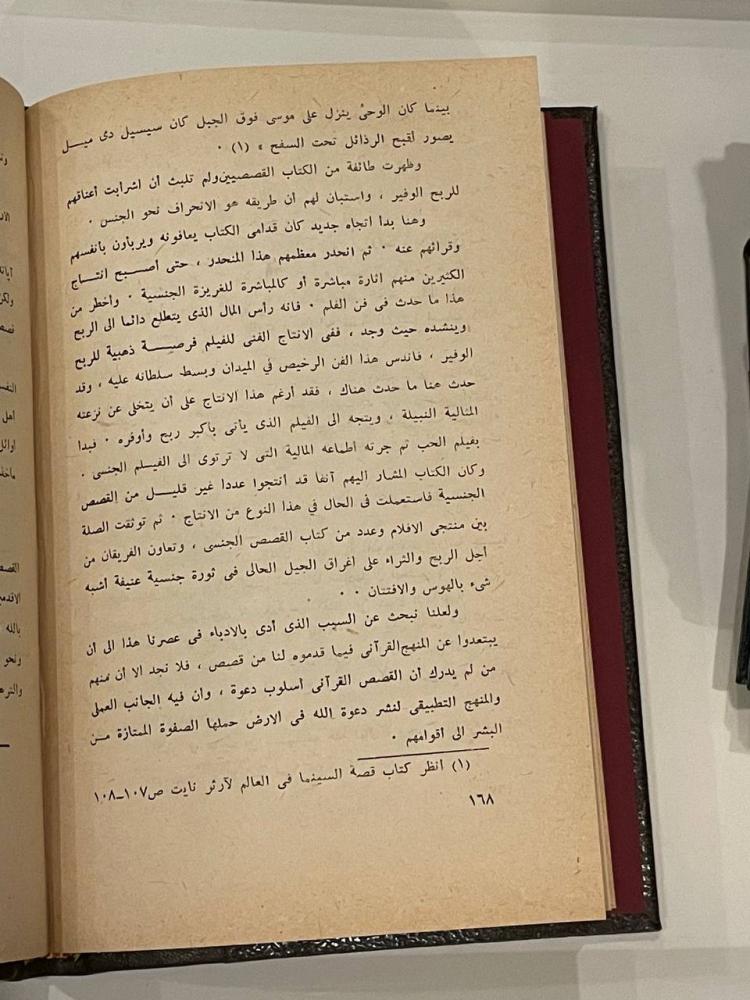 بينما كان الوحى ينزل على موسى فوق الجبل كان سيسيل دى ميـــل
يصور أقبح الرذائل تحت السفح » (١) ٠
وظهرت طائفة من الكتاب القصصيين ولم تلبث أن اشرأبت أعناقهم
للربح الوفير ، واستبان لهم أن طريقه هو الانحراف نحو الجنس ٠
وهنا بدأ اتجاه جديد كان قدامى الكتاب يعافونه ويربأون بأنفسهم
وقرائهم عنه ٠ ثم انحدر معظمهم هذا المنحدر ، حتى أصـــبح انتــاج
الكثيرين منهم اثارة مباشرة أو كالمباشرة للغريزة الجنسية ٠ وأخطر من
هذا ما حدث فى فن الفلم ٠ فانه رأس المال الذى يتطلع دائما الى الربح
وينشده حيث وجد ، ففى الانتاج الفنى للفيلم فرصــــة ذهبية للربح
الوفير ، فاندس هذا الفن الرخيص في الميدان وبسط سلطانه عليه ، وقد
حدث هنا ما حدث هناك ، فقد أرغم هذا الانتاج على أن يتخلى عن نزعته
المثالية النبيلة ، ويتجه الى الفيلم الذى يأتى بأكبر ربح وأوفره ٠ فبدا
بفيلم الحب ثم جرته أطماعه المالية التى لا ترتوى الى الفيـلم الجنسى ٠
وكان الكتاب المشار اليهم آنفا قد انتجوا عددا غير قليــــل من القصص
الجنسية فاستعملت في الحال في هذا النوع من الانتاج ٠ ثم توثقت الصلة
بين منتجى الافلام وعدد من كتاب القصص الجنسى ، وتعاون الفريقان من
أجل الربح والثراء على اغراق الجيل الحالى فى ثورة جنسية عنيفة أشبه
شىء بالهوس والافتتان ٠ ٠
ولعلنا نبحث عن السبب الذى أدى بالادباء فى عصرنا هذا الى أن
يبتعدوا عن المنهج القرآنى فيما قدموه لنا من قصص ، فلا نجد الا أن منهم
من لم يدرك أن القصص القرآنى أسلوب دعوة ، وان فيه الجانب العملى
والمنهج التطبيقى لنشر دعوة الله فى الارض حملها الصفوة الممتازة مــن
البشر الى أقوامهم ٠
(١) انظر كتاب قصة السينما فى العالم لآرثر نايت ص١٠٧ــ١٠٨
١٦٨